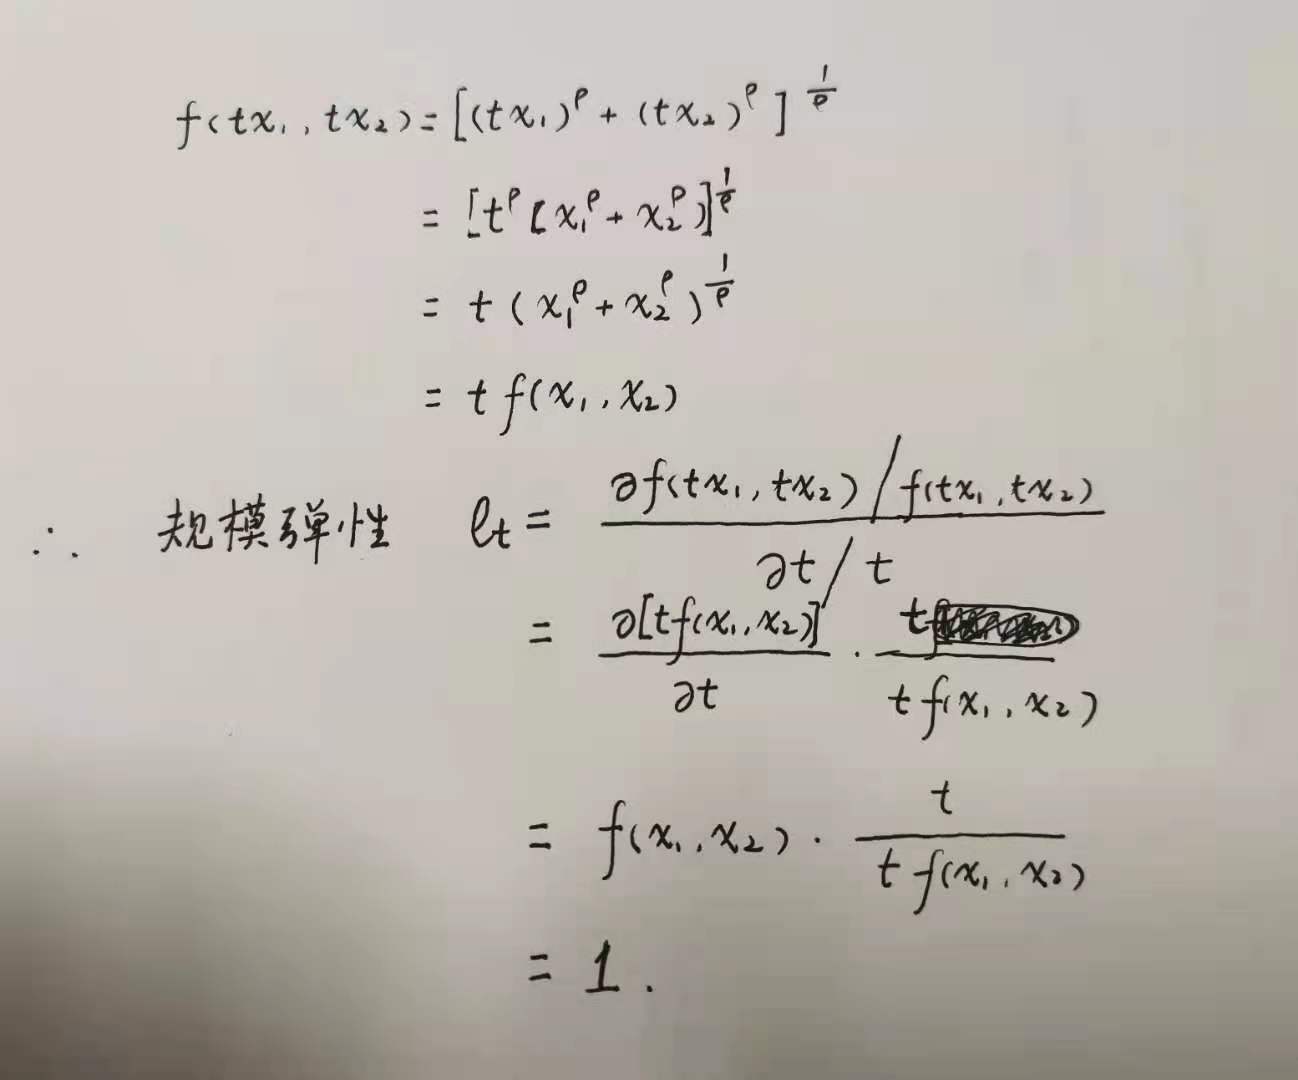 f(tx₁, tx₂) = [(tx₁)^ρ + (tx₂)^ρ]^(1/ρ)
= [t^ρ [x₁^ρ + x₂^ρ)]^(1/ρ)
= t (x₁^ρ + x₂^ρ)^(1/ρ)
= t f(x₁, x₂)
∴ 规模弹性 e_t = (∂f(tx₁, tx₂) / f(tx₁, tx₂)) / (∂t / t)
= ∂[tf(x₁, x₂)] / ∂t · t / (t f(x₁, x₂))
= f(x₁, x₂) · t / (t f(x₁, x₂))
= 1.